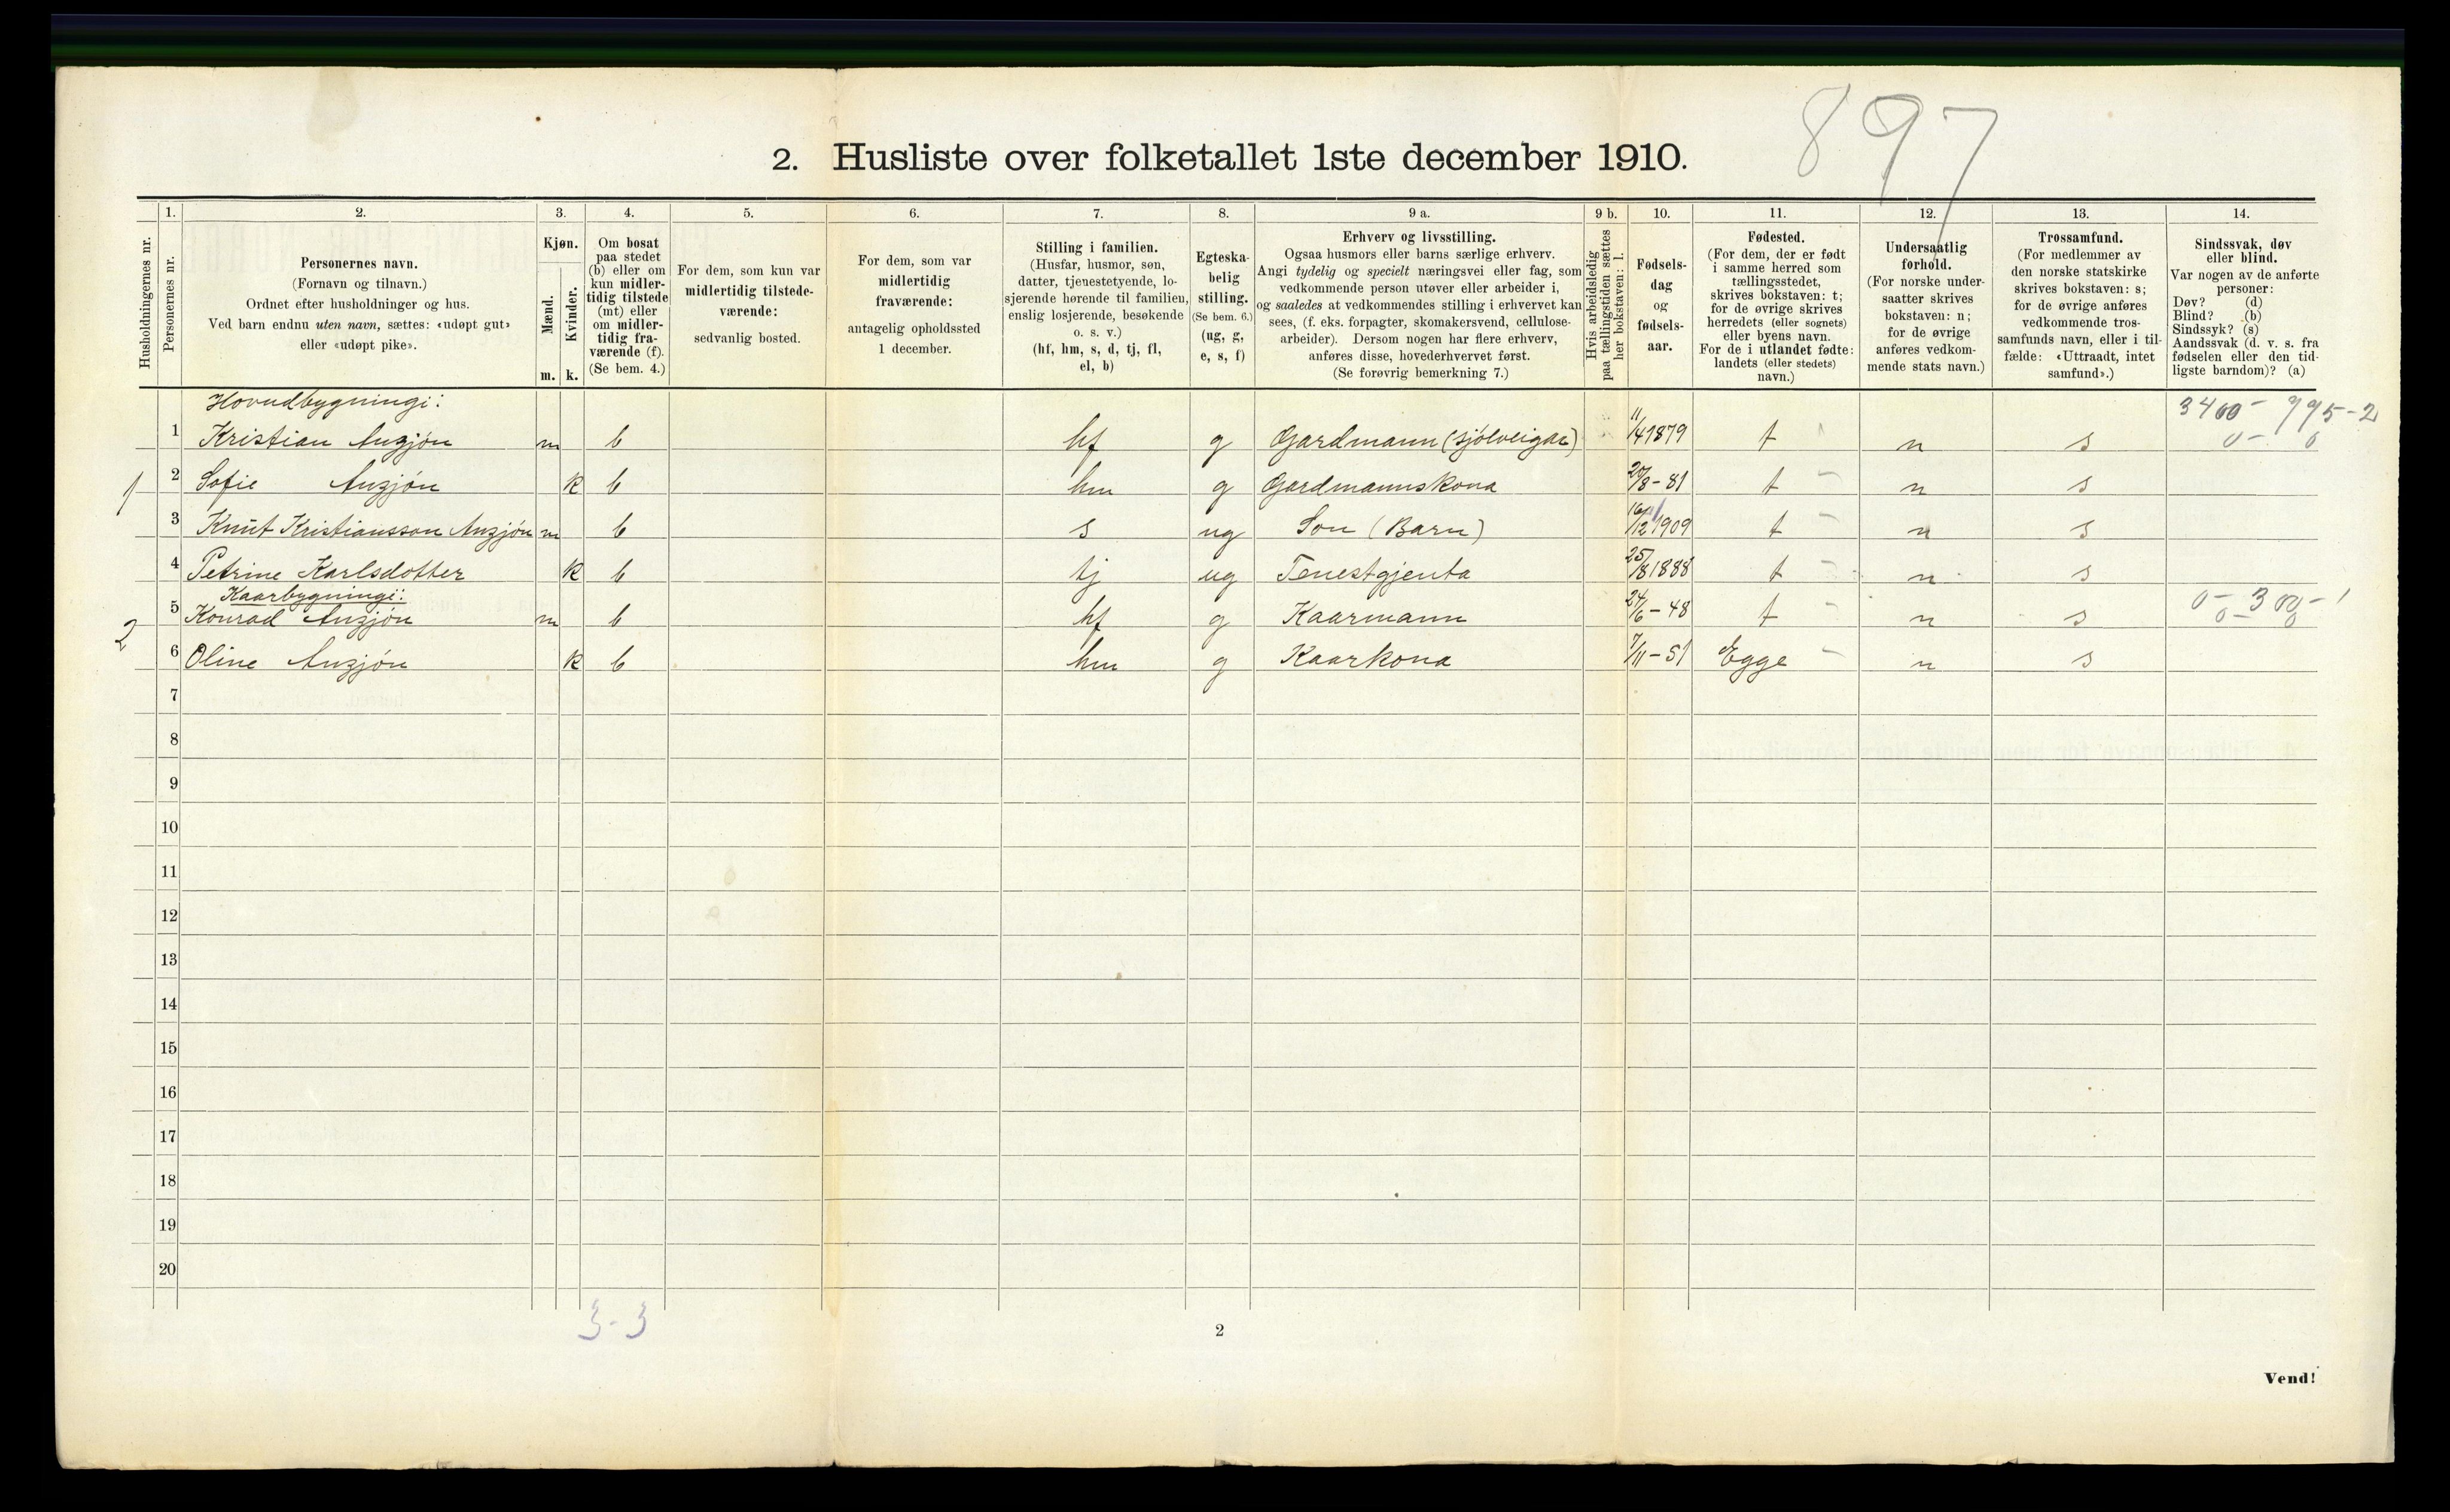 897
2. Husliste over folketallet 1ste december 1910.
Husholdningernes nr.
1. Personernes nr.
2. Personernes navn.
(Fornavn og tilnavn.)
Ordnet efter husholdninger og hus.
Ved barn endnu uten navn, sættes: «udøpt gut»
eller «udøpt pike».
3. Kjøn.
Mænd. m.
Kvinder. k.
4. Om bosat
paa stedet
(b) eller om
kun midler-
tidig tilstede
(mt) eller
om midler-
tidig fra-
værende (f).
(Se bem. 4.)
5. For dem, som kun var
midlertidig tilstede-
værende:
sedvanlig bosted.
6. For dem, som var
midlertidig
fraværende:
antagelig opholdssted
1 december.
7. Stilling i familien.
(Husfar, husmor, søn,
datter, tjenestetyende, lo-
sjerende hørende til familien,
enslig losjerende, besøkende
o. s. v.)
(hf, hm, s, d, tj, fl,
el, b)
8. Egteska-
belig
stilling.
(Se bem. 6.)
(ug, g,
e, s, f)
9 a. Erhverv og livsstilling.
Ogsaa husmors eller barns særlige erhverv.
Angi tydelig og specielt næringsvei eller fag, som
vedkommende person utøver eller arbeider i,
og saaledes at vedkommendes stilling i erhvervet kan
sees, (f. eks. forpagter, skomakersvend, cellulose-
arbeider). Dersom nogen har flere erhverv,
anføres disse, hovederhvervet først.
(Se forøvrig bemerkning 7.)
9 b. Hvis arbeidsledig
paa tællingstiden sættes
her bokstaven: l.
10. Fødsels-
dag
og
fødsels-
aar.
11. Fødested.
(For dem, der er født
i samme herred som
tællingsstedet,
skrives bokstaven: t;
for de øvrige skrives
herredets (eller sognets)
eller byens navn.
For de i utlandet fødte:
landets (eller stedets)
navn.)
12. Undersaatlig
forhold.
(For norske under-
saatter skrives
bokstaven: n;
for de øvrige
anføres vedkom-
mende stats navn.)
13. Trossamfund.
(For medlemmer av
den norske statskirke
skrives bokstaven: s;
for de øvrige anføres
vedkommende tros-
samfunds navn, eller i til-
fælde: «Uttraadt, intet
samfund».)
14. Sindssvak, døv
eller blind.
Var nogen av de anførte
personer:
Døv? (d)
Blind? (b)
Sindssyk? (s)
Aandssvak (d. v. s. fra
fødselen eller den tid-
ligste barndom)? (a)
Hovudbygningi: 3400- 995-2
1 Kristian Auzjón m b hf g Gardmann (sjölveigar) 11/4 1879 t n s 0- 0
1 2 Sofie Auzjón k b hm g Gardmannskona 20/8-81 t n s
3 Knut Kristiansson Auzjón m b s ug Son (Barn) 16/12 1909 t n s
4 Petrine Karlsdotter k b tj ug Tenestgjenta 25/8 1888 t n s
Kaarbygningi: 0-300-1
2 5 Konrad Auzjón m b hf g Kaarmann 24/6-48 t n s 0- 0
6 Oline Auzjón k b hm g Kaarkona 7/11-51 Egge n s
7
8
9
10
11
12
13
14
15
16
17
18
19
20
3-3
2
Vend!